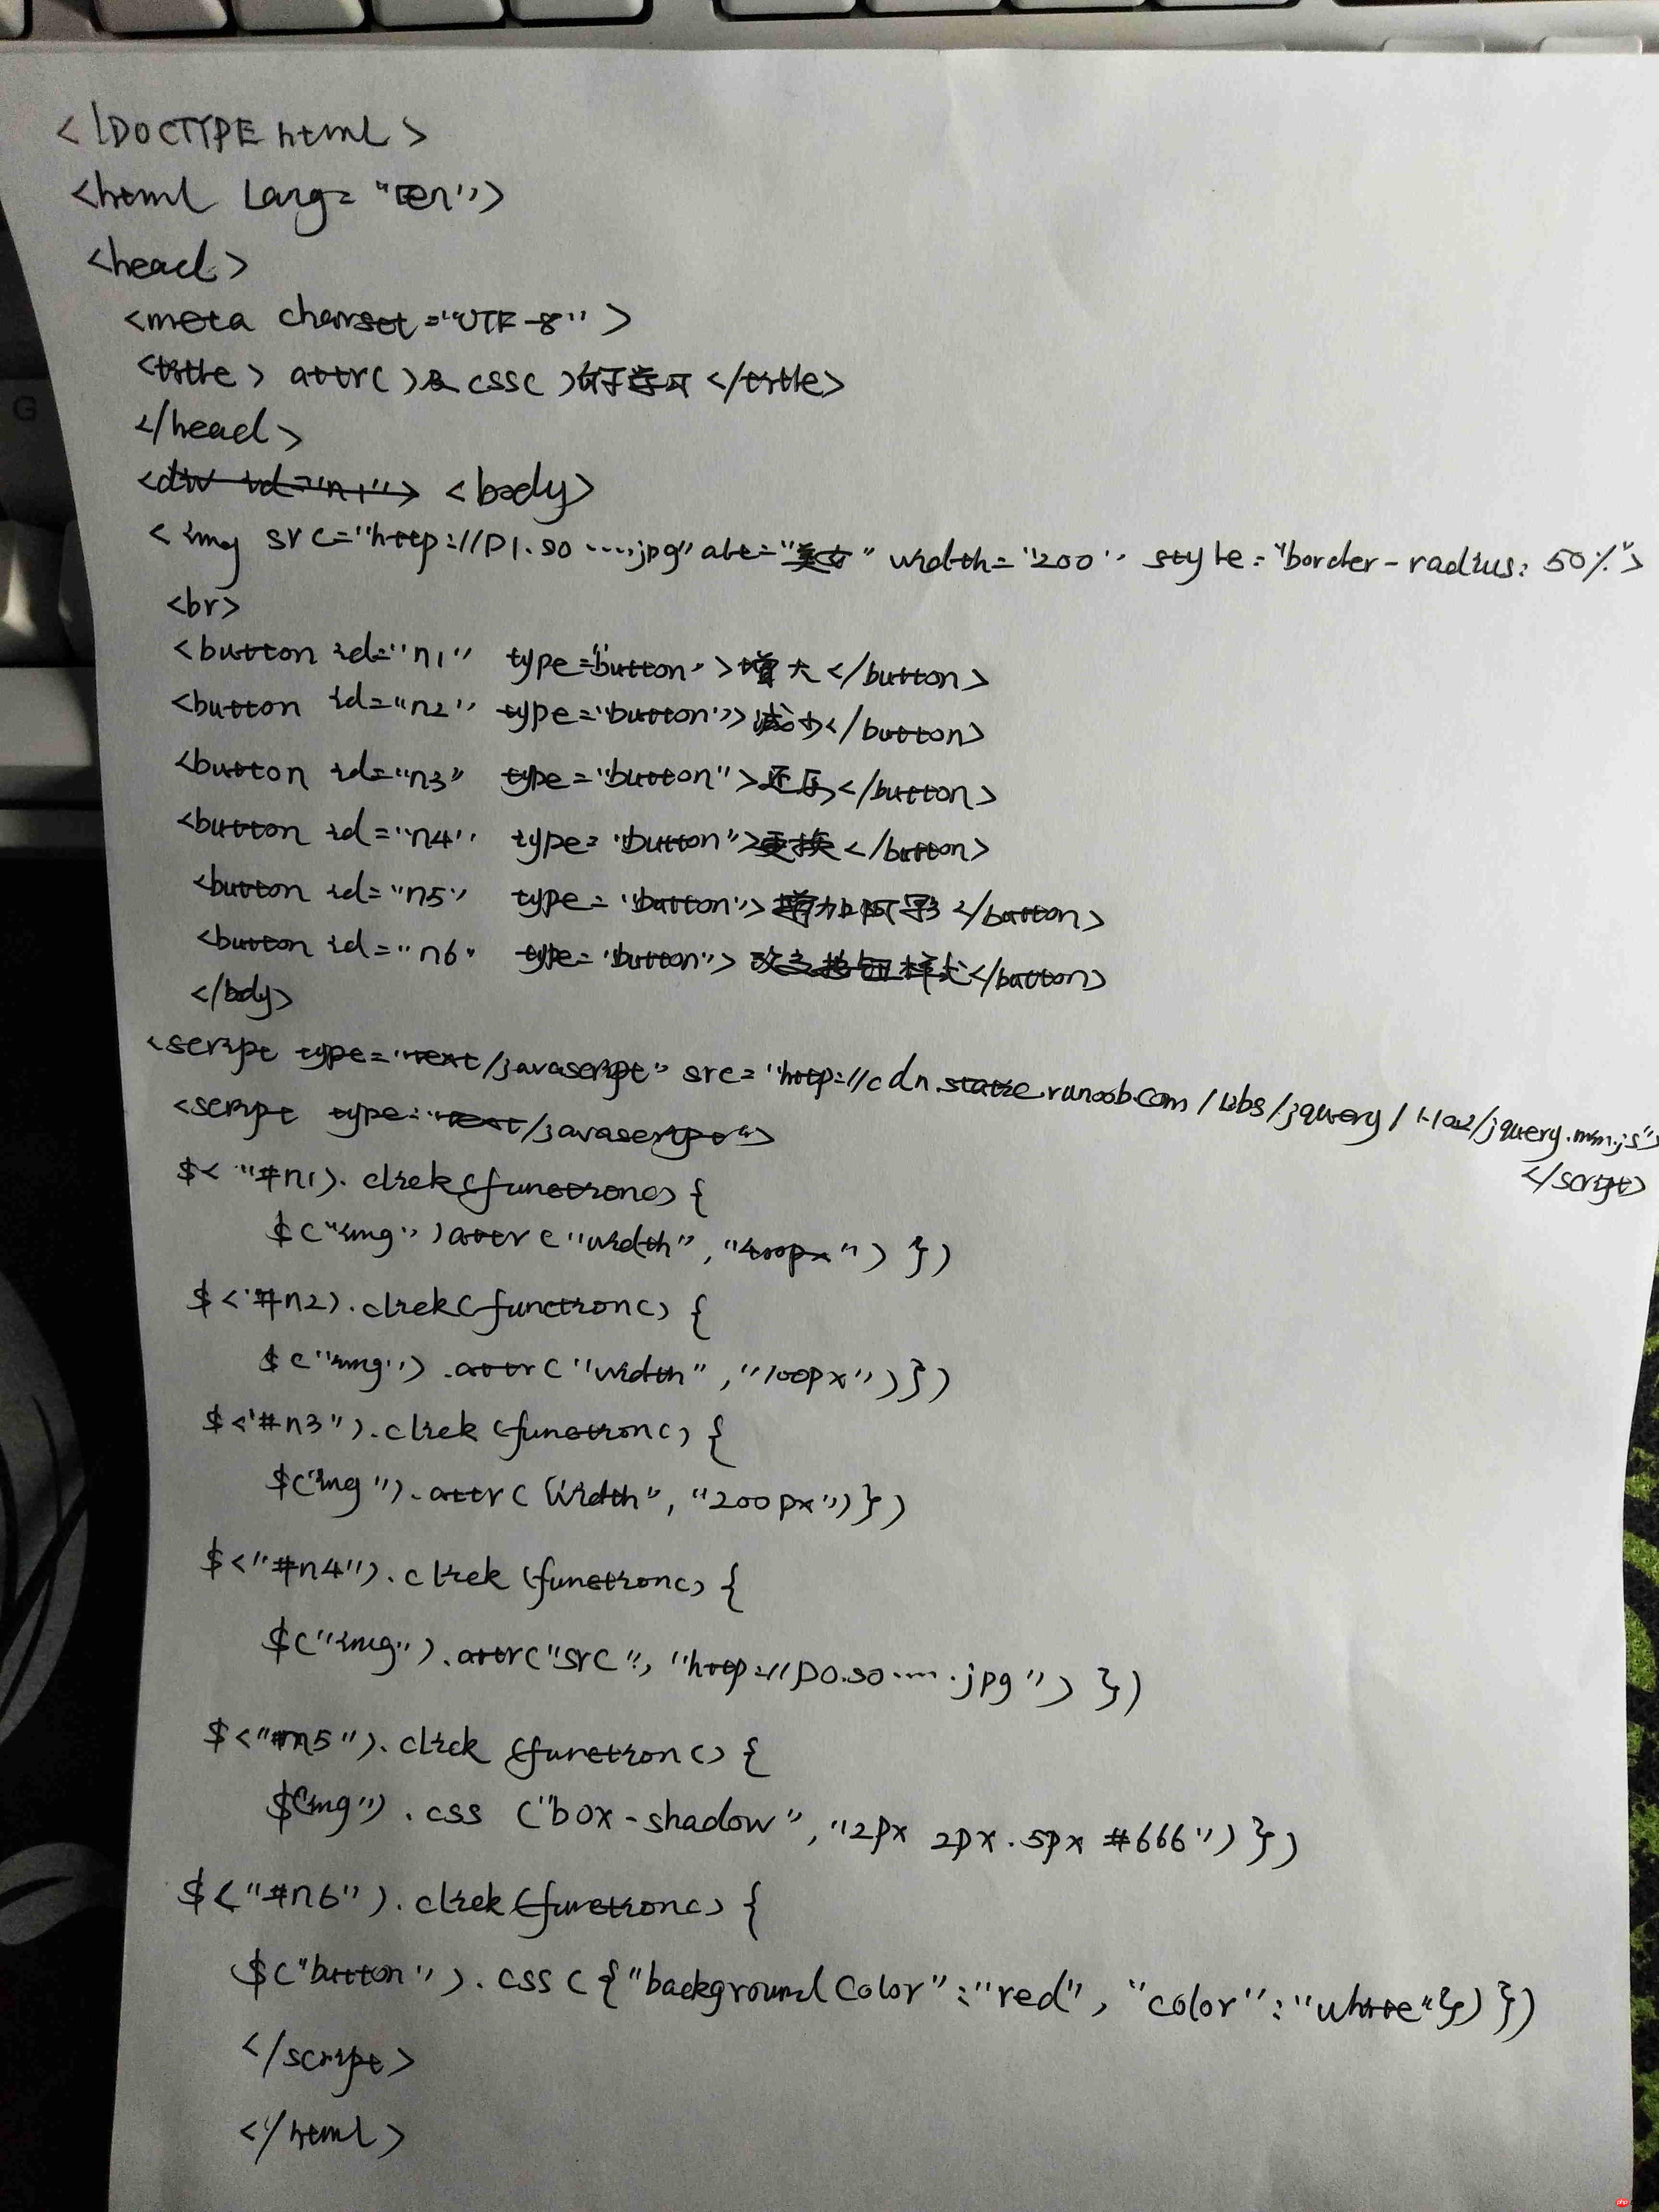 <!DOCTYPE html>
<html lang="en">
<head>
<meta charset="UTF-8">
<title> attr()及css()
</title>
</head>
<body>
<img src="http://p1.so.....jpg" alt="美女" width="200" style="border-radius: 50%">
<br>
<button id="n1" type="button">增大</button>
<button id="n2" type="button">减小</button>
<button id="n3" type="button">还原</button>
<button id="n4" type="button">更换</button>
<button id="n5" type="button">增加阴影</button>
<button id="n6" type="button">改变按钮样式</button>
</body>
<script type="text/javascript" src="http://cdn.static.runoob.com/libs/jquery/1.10.2/jquery.min.js">
</script>
<script type="text/javascript">
$< "#n1).click(function() {
$("img")attr("width","400px") })
$<"#n2).click(function() {
$("img").attr("width","100px")})
$<"#n3").click(function() {
$("img").attr("width","200px")})
$<"#n4").click(function() {
$("img").attr("src","http://p0.so.....jpg") })
$<"#n5").click(function() {
$("img").css("box-shadow","2px 2px.5px #666")})
$("#n6").click(function() {
$("button").css({"backgroundColor":"red","color":"white"})})
</script>
</html>